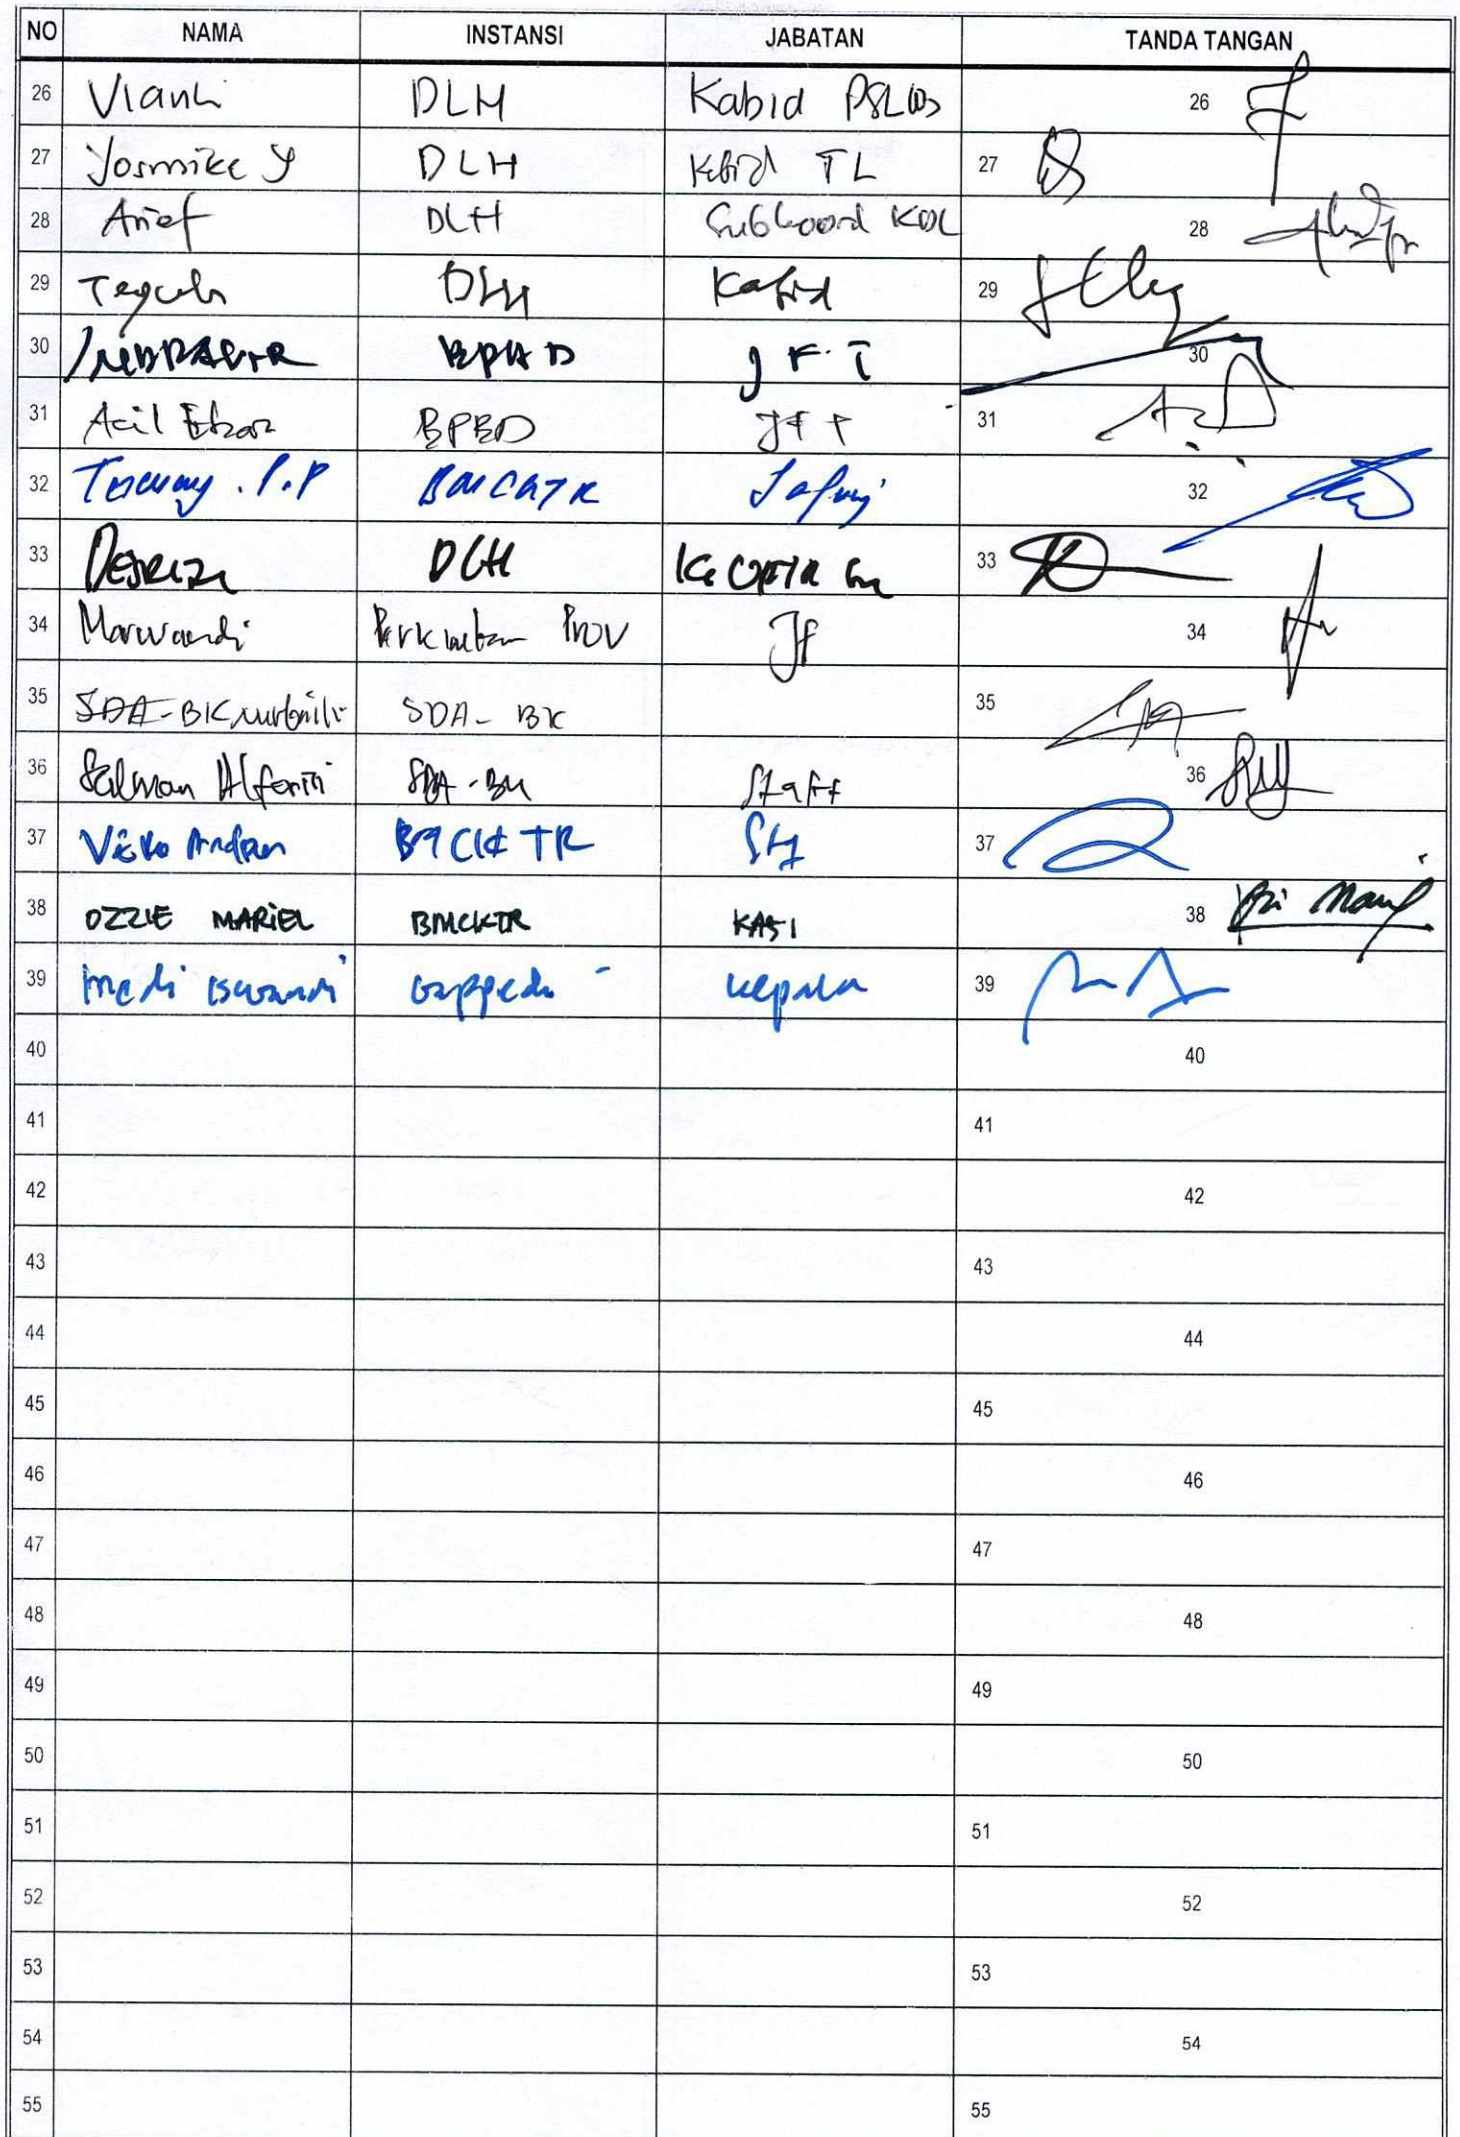 NO NAMA INSTANSI JABATAN TANDA TANGAN
26 Vianti DLH Kabid 26
27 Yosmike Y DLH Kabid TL 27
28 Arief DLH Subkoord KDL 28
29 Teguh DLH Kabid 29
30 J F T 30
31 Acil BPBD JFT 31
32 Tommy . P.P BMCKTR 32
33 DLH 33
34 Marwandi Prov JF 34
35 SDA-BK SDA-BK 35
36 Salman Alfarisi SDA-BK Staff 36
37 BMCKTR 37
38 OZZIE MARIEL BMCKTR KASI 38
39 medi iswandi Bappeda kepala 39
40 40
41 41
42 42
43 43
44 44
45 45
46 46
47 47
48 48
49 49
50 50
51 51
52 52
53 53
54 54
55 55